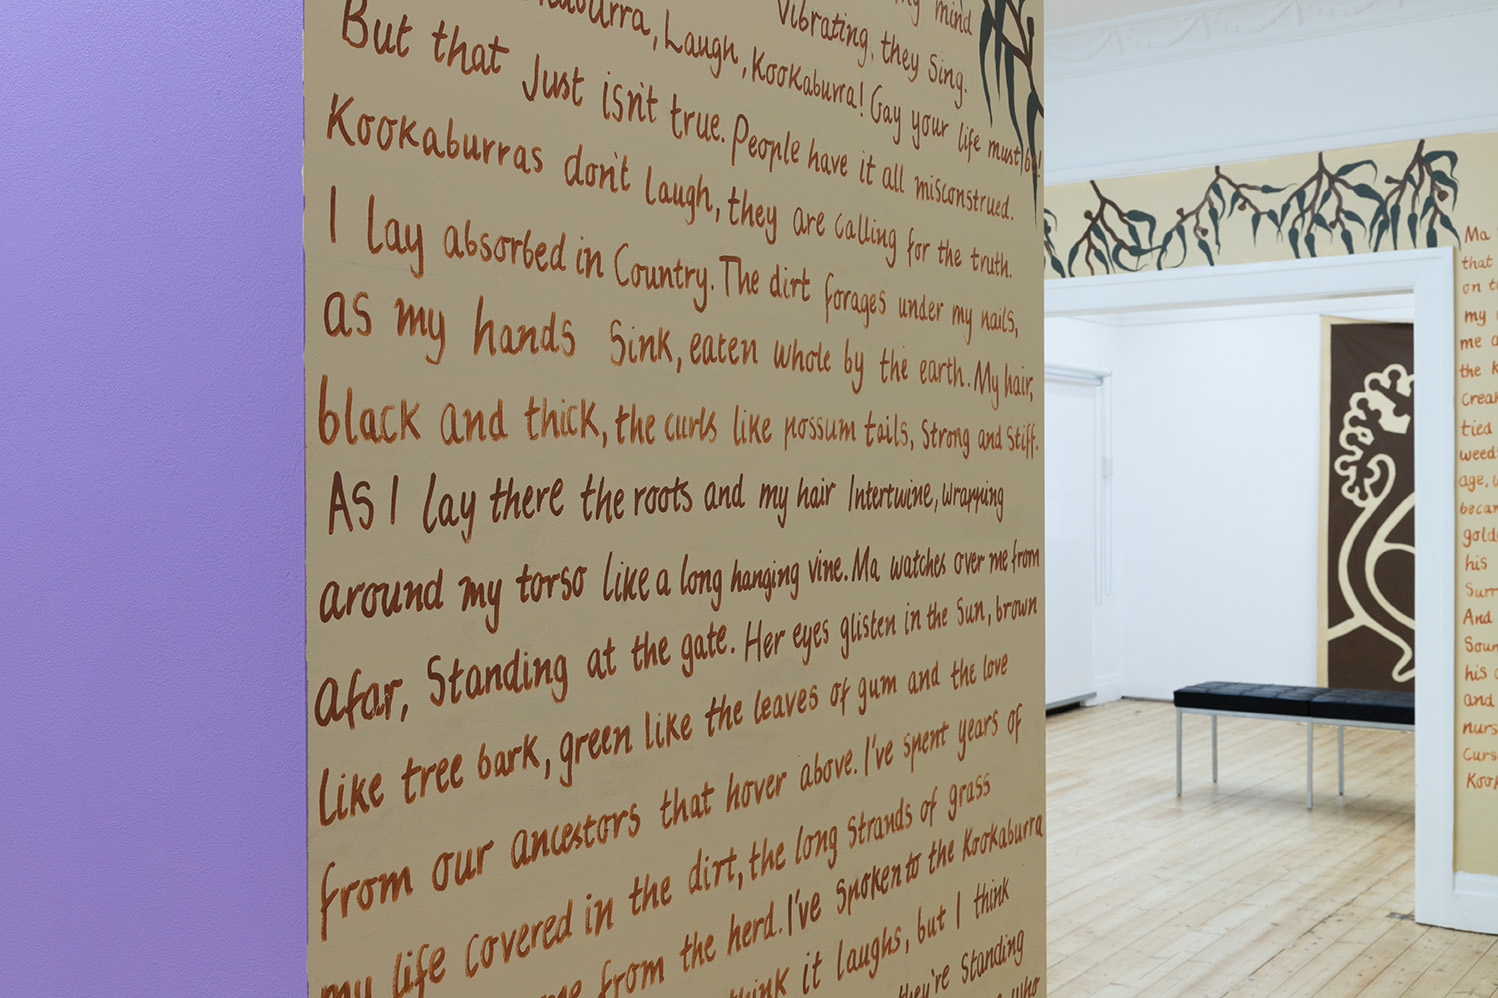 my mind
Vibrating, they Sing.
Laugh, Kookaburra! Gay your life must be!
But that Just isn't true. People have it all misconstrued.
Kookaburras don't laugh, they are calling for the truth.
I lay absorbed in Country. The dirt forages under my nails,
as my hands Sink, eaten whole by the earth. My hair,
black and thick, the curls like possum tails, Strong and Stiff.
As I lay there the roots and my hair Intertwine, wrapping
around my torso like a long hanging vine. Ma watches over me from
afar, Standing at the gate. Her eyes glisten in the Sun, brown
like tree bark, green like the leaves of gum and the love
from our ancestors that hover above. I've spent years of
my life covered in the dirt, the long Strands of grass
me from the herd. I've Spoken to the Kookaburra
think it laughs, but I think
they're Standing
who
Ma
that
my
me
the
tied
his
And
his
and